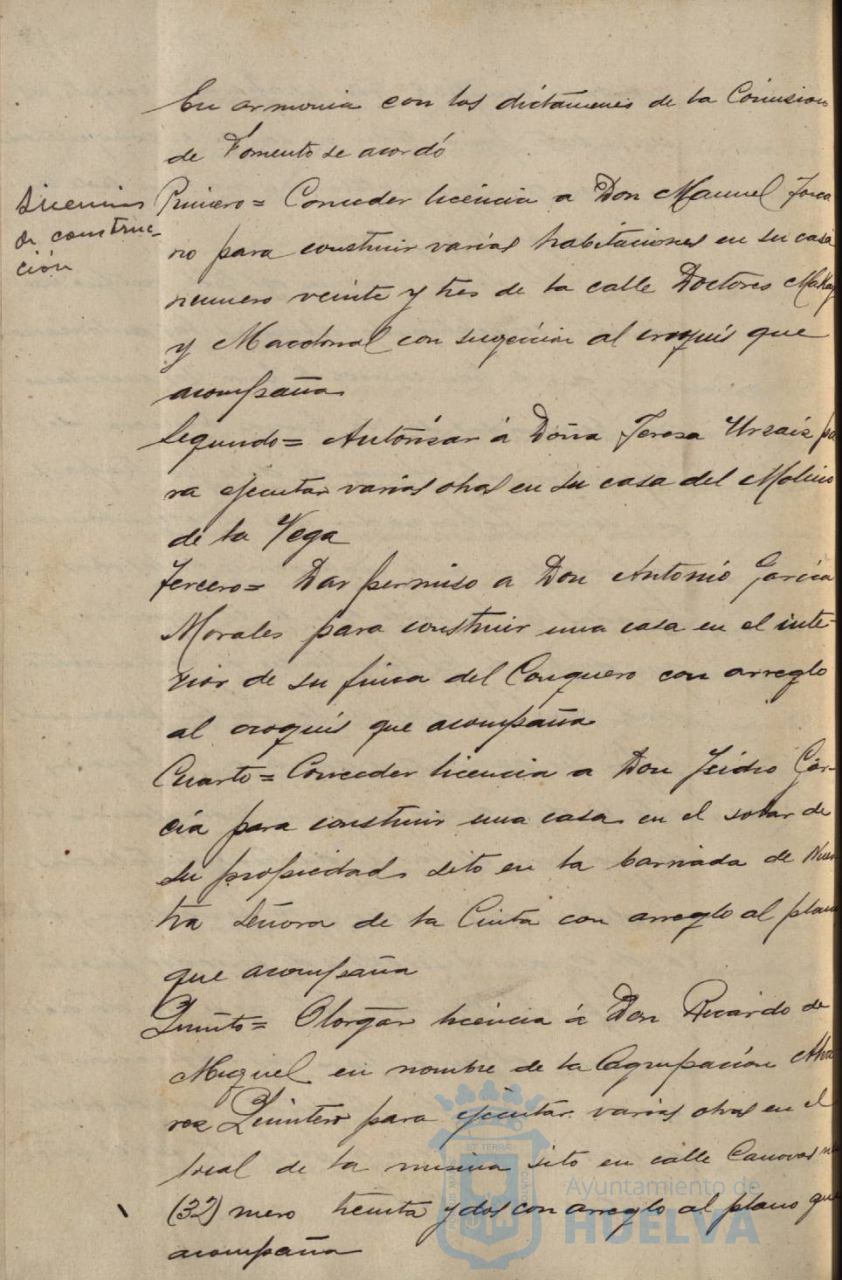 En armonia con los dictámenes de la Comision
de Fomento se acordó
Licencias
de construc-
ción
Primero= Conceder licencia a Don Manuel
no para construir varias habitaciones en su casa
numero veinte y tres de la calle Doctores Mackay
y Macdonal con sugección al croquis que
acompaña
Segundo= Autorisar á Doña Teresa Ursaiz pa
ra ejecutar varias obras en su casa del Molino
de la Vega
Tercero= Dar permiso a Don Antonio García
Morales para construir una casa en el inte-
rior de su finca del Conquero con arreglo
al croquis que acompaña
Cuarto= Conceder licencia a Don Isidro Gar-
cía para construir una casa en el solar de
su propiedad sito en la barriada de Nues
tra Señora de la Cinta con arreglo al plano
que acompaña
Quinto= Otorgar licencia á Don Ricardo de
Miguel en nombre de la Agrupación Alva
rez Quintero para ejecutar varias obras en el
local de la misma sito en calle Canovas nu
(32) mero treinta y dos con arreglo al plano que
acompaña
Ayuntamiento de
HUELVA